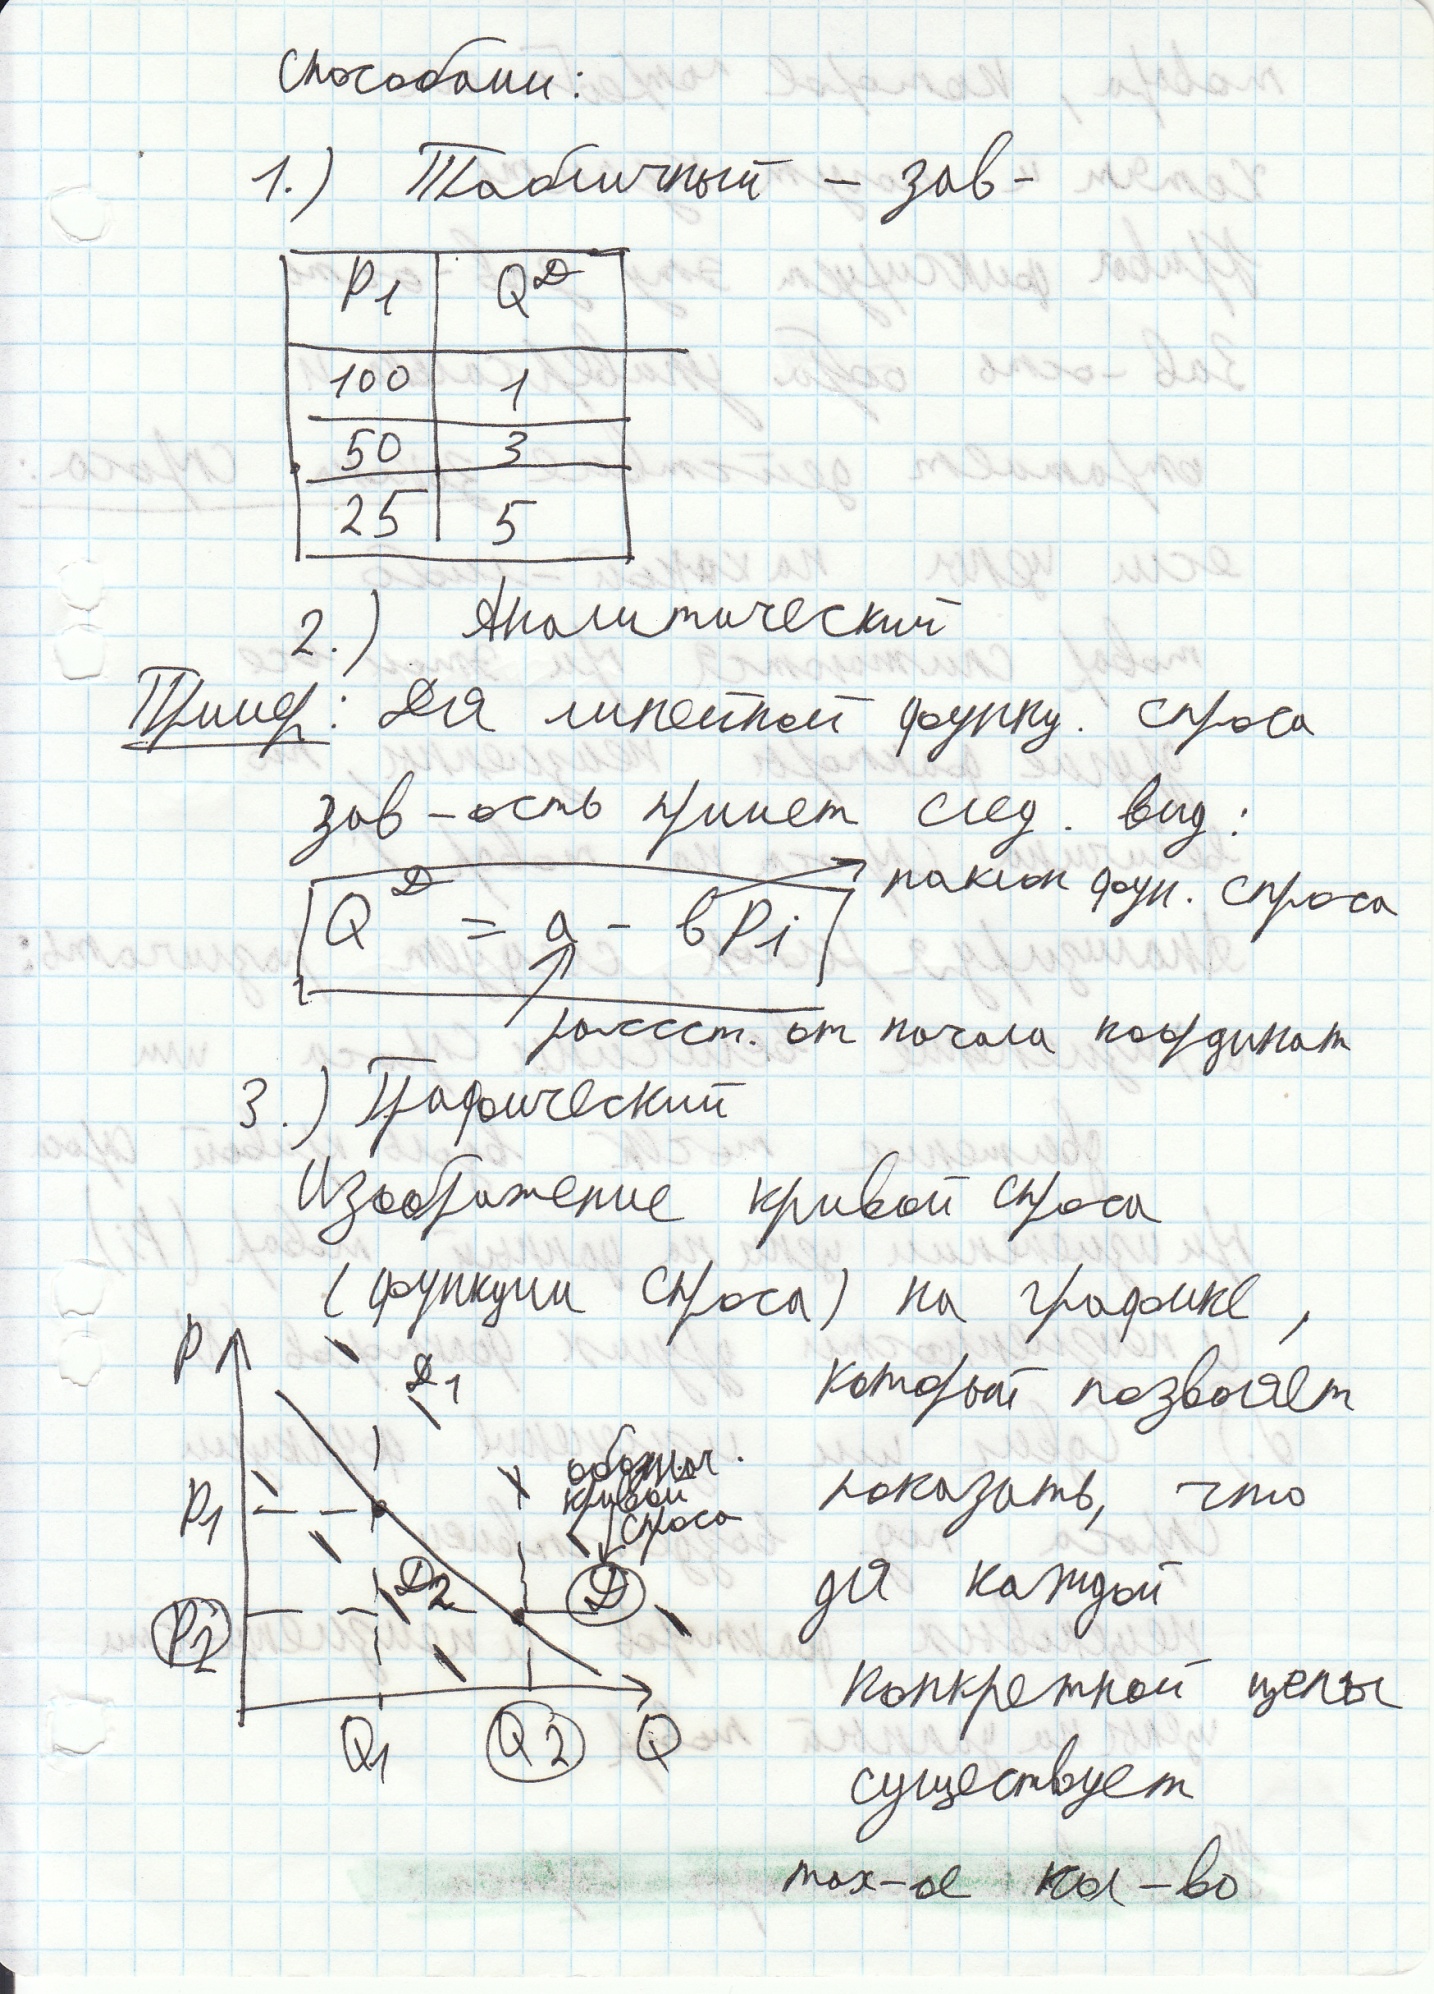 способами:
1.) Табличный – зав-
P1 QD
100 1
50 3
25 5
2.) Аналитический
Пример: Для линейной функц. спроса
зав-ость примет след. вид:
QD = a - bPi
наклон фун. спроса
расст. от начала координат
3.) Графический
Изображение кривой спроса
(функции спроса) на графике,
который позволяет
показать, что
для каждой
конкретной цены
существует
max-ое кол-во
P
D1
обознач.
кривой
спроса
P1
D2
D
P2
Q1 Q2 Q